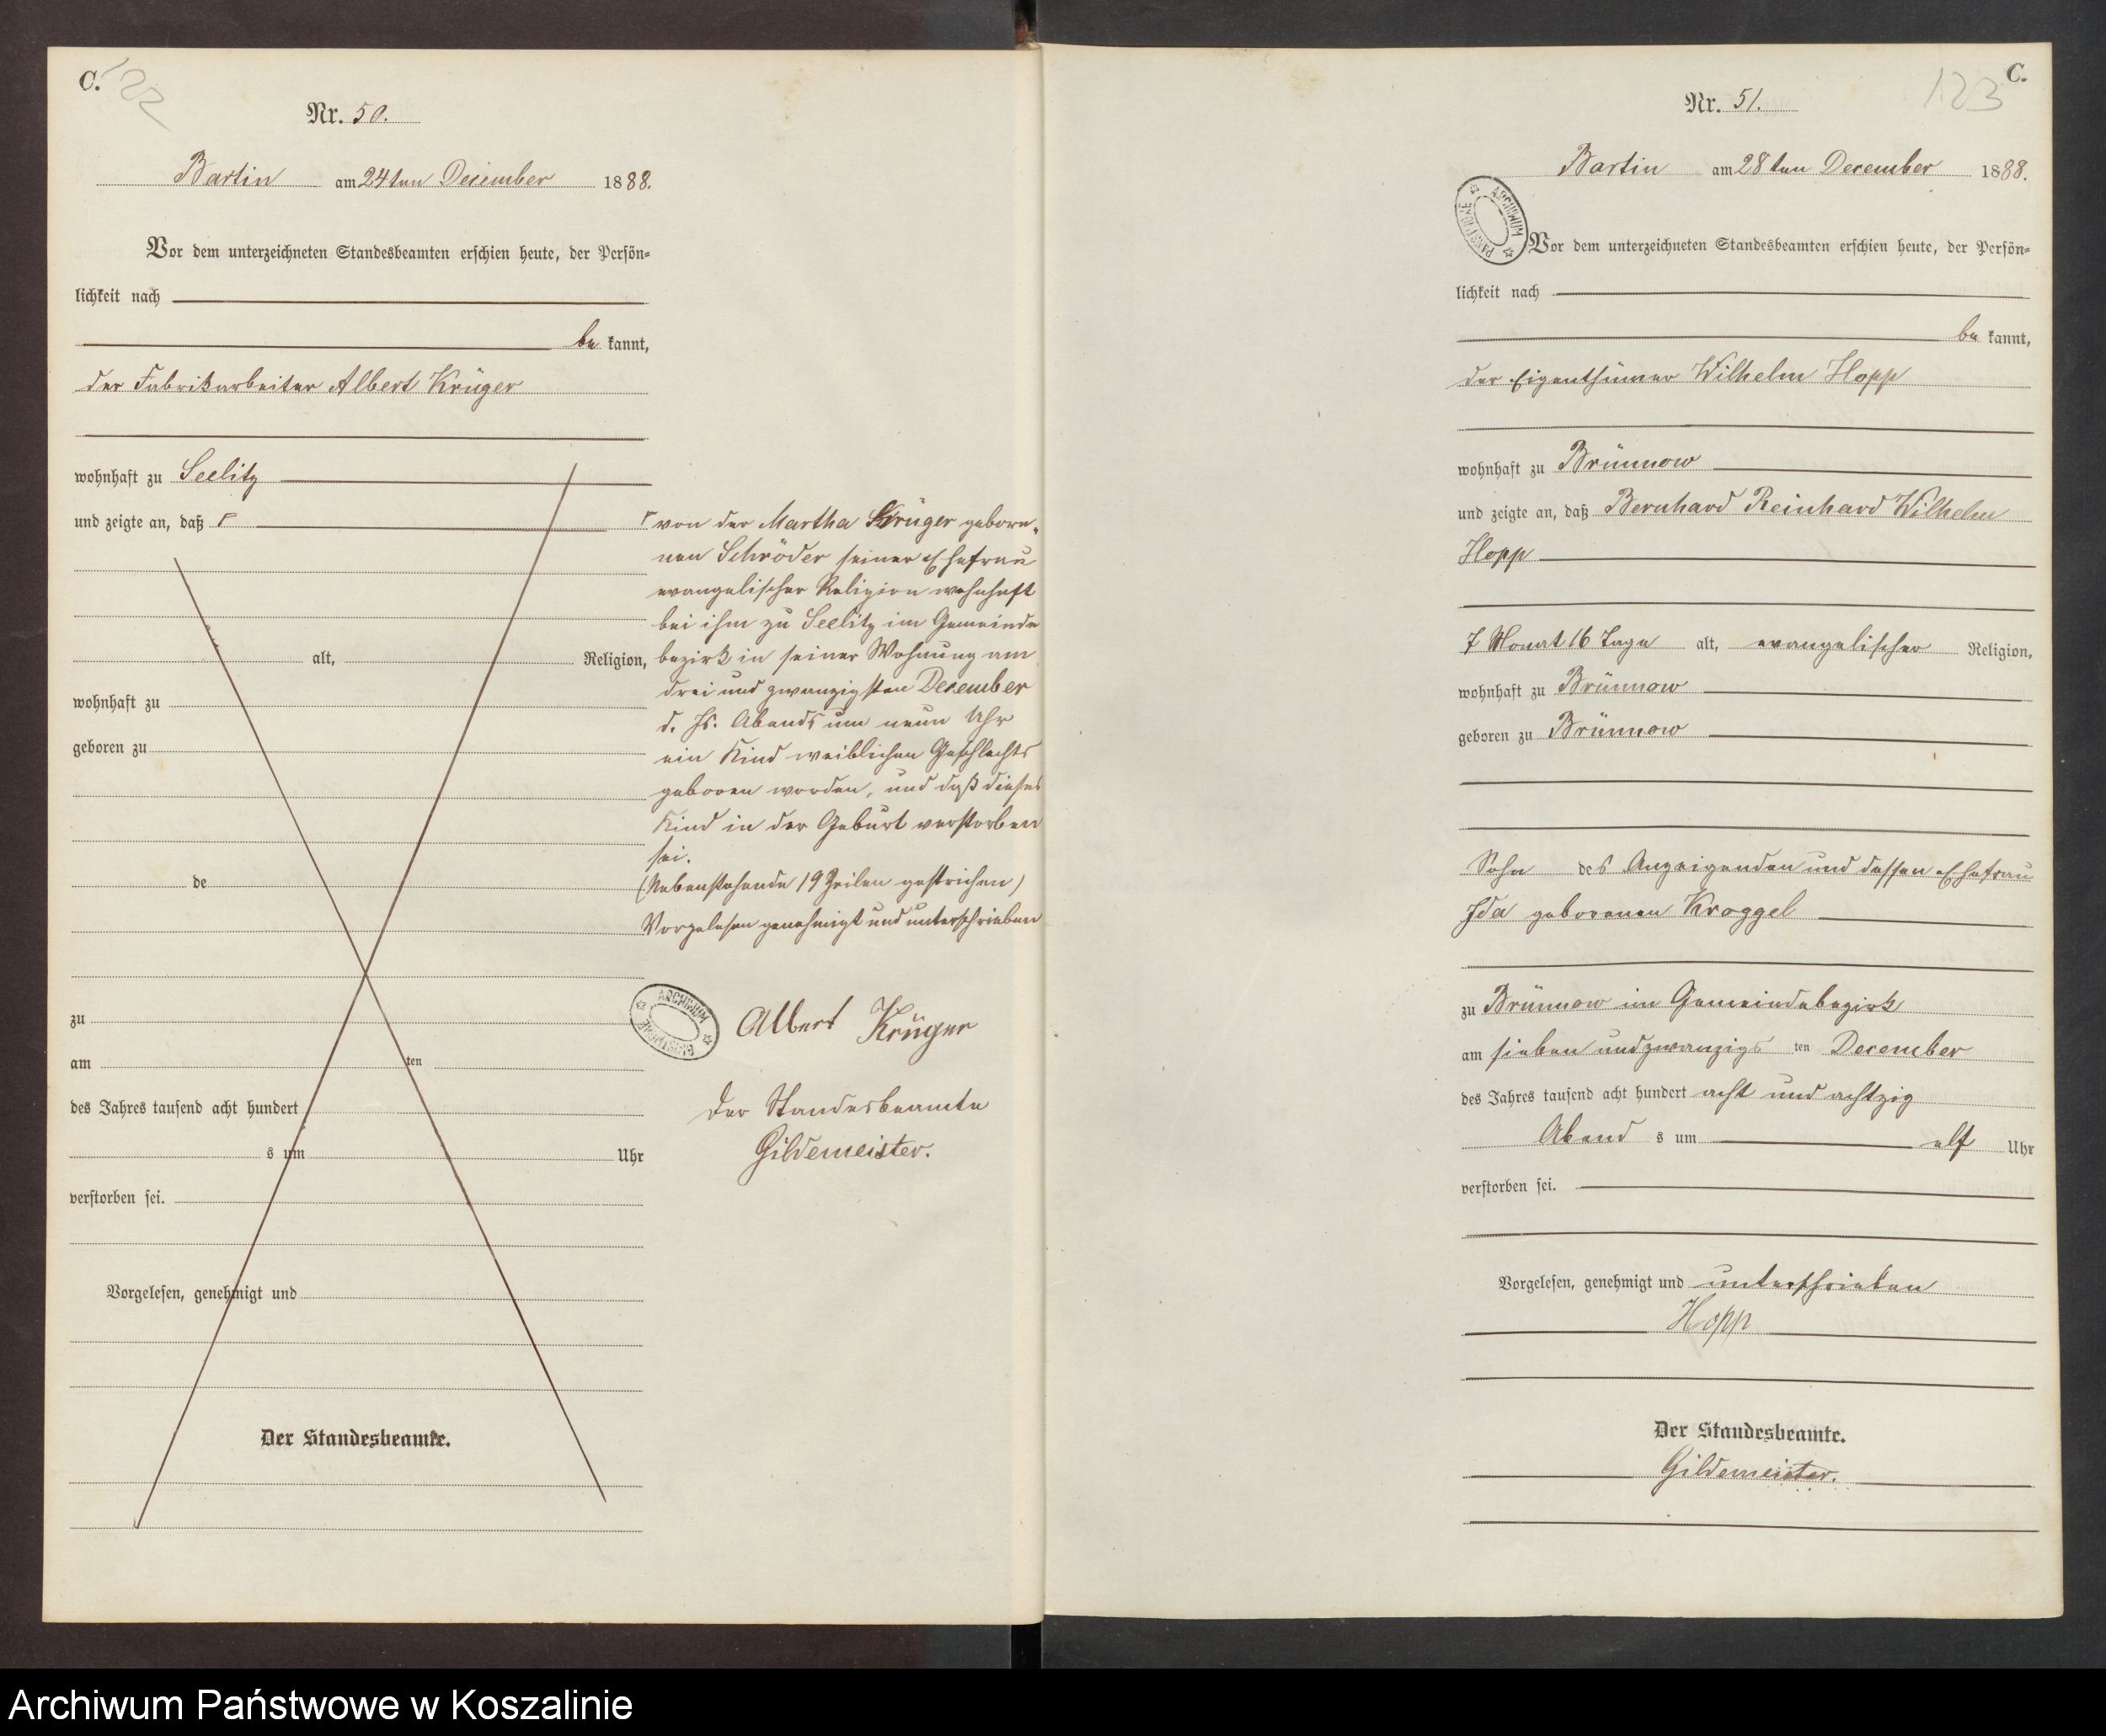 C.
122
Nr. 50.
Bartin am 24ten December 1888.
Vor dem unterzeichneten Standesbeamten erschien heute, der Persön-
lichkeit nach
bekannt,
der Fabrikarbeiter Albert Krüger
wohnhaft zu Seelitz
und zeigte an, daß
alt, Religion,
wohnhaft zu
geboren zu
de
zu
am ten
des Jahres tausend acht hundert
s um Uhr
verstorben sei.
Vorgelesen, genehmigt und
Der Standesbeamte.
von der Martha Krüger gebore-
nen Schröder seiner Ehefrau
evangelischer Religion wohnhaft
bei ihm zu Seelitz im Gemeinde
bezirk in seiner Wohnung am
drei und zwanzigsten December
d. Js. Abends um neun Uhr
ein Kind weiblichen Geschlechts
geboren worden, und daß dieses
Kind in der Geburt verstorben
sei.
(Nebenstehende 19 Zeilen gestrichen)
Vorgelesen genehmigt und unterschrieben
ARCHIWUM PAŃSTWOWE
Albert Krüger
Der Standesbeamte
Gildemeister.
C.
123
Nr. 51.
Bartin am 28ten December 1888.
ARCHIWUM PAŃSTWOWE
Vor dem unterzeichneten Standesbeamten erschien heute, der Persön-
lichkeit nach
bekannt,
der Eigenthümer Wilhelm Hopp
wohnhaft zu Brünnow
und zeigte an, daß Bernhard Reinhard Wilhelm
Hopp
7 Monat 16 Tage alt, evangelischer Religion,
wohnhaft zu Brünnow
geboren zu Brünnow
Sohn des Anzeigenden und dessen Ehefrau
Ida geborenen Kroggel
zu Brünnow im Gemeindebezirk
am sieben und zwanzigsten December
des Jahres tausend acht hundert acht und achtzig
Abends um elf Uhr
verstorben sei.
Vorgelesen, genehmigt und unterschrieben
Hopp
Der Standesbeamte.
Gildemeister.
Archiwum Państwowe w Koszalinie